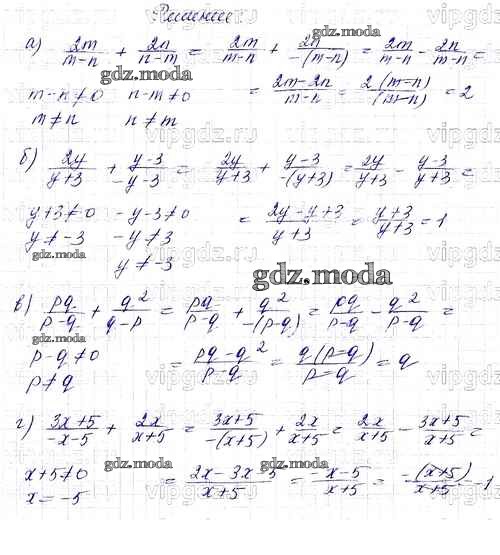 Решение
а) 2m/(m-n) + 2n/(n-m) = 2m/(m-n) + 2n/(-(m-n)) = 2m/(m-n) - 2n/(m-n) =
gdz.moda
m-n≠0 n-m≠0 = (2m-2n)/(m-n) = 2(m-n)/(m-n) = 2
m≠n n≠m
б) 2y/(y+3) + (y-3)/(-y-3) = 2y/(y+3) + (y-3)/(-(y+3)) = 2y/(y+3) - (y-3)/(y+3) =
gdz.moda
y+3≠0 -y-3≠0 = (2y-y+3)/(y+3) = (y+3)/(y+3) = 1
y≠-3 -y≠3
y≠-3
gdz.moda
в) pq/(p-q) + q²/(q-p) = pq/(p-q) + q²/(-(p-q)) = pq/(p-q) - q²/(p-q) =
gdz.moda
p-q≠0 = (pq-q²)/(p-q) = q(p-q)/(p-q) = q
p≠q
г) (3x+5)/(-x-5) + 2x/(x+5) = (3x+5)/(-(x+5)) + 2x/(x+5) = 2x/(x+5) - (3x+5)/(x+5) =
gdz.moda
x+5≠0 = (2x-3x-5)/(x+5) = (-x-5)/(x+5) = -(x+5)/(x+5) = -1
x=-5
gdz.moda
vipgdz.ru